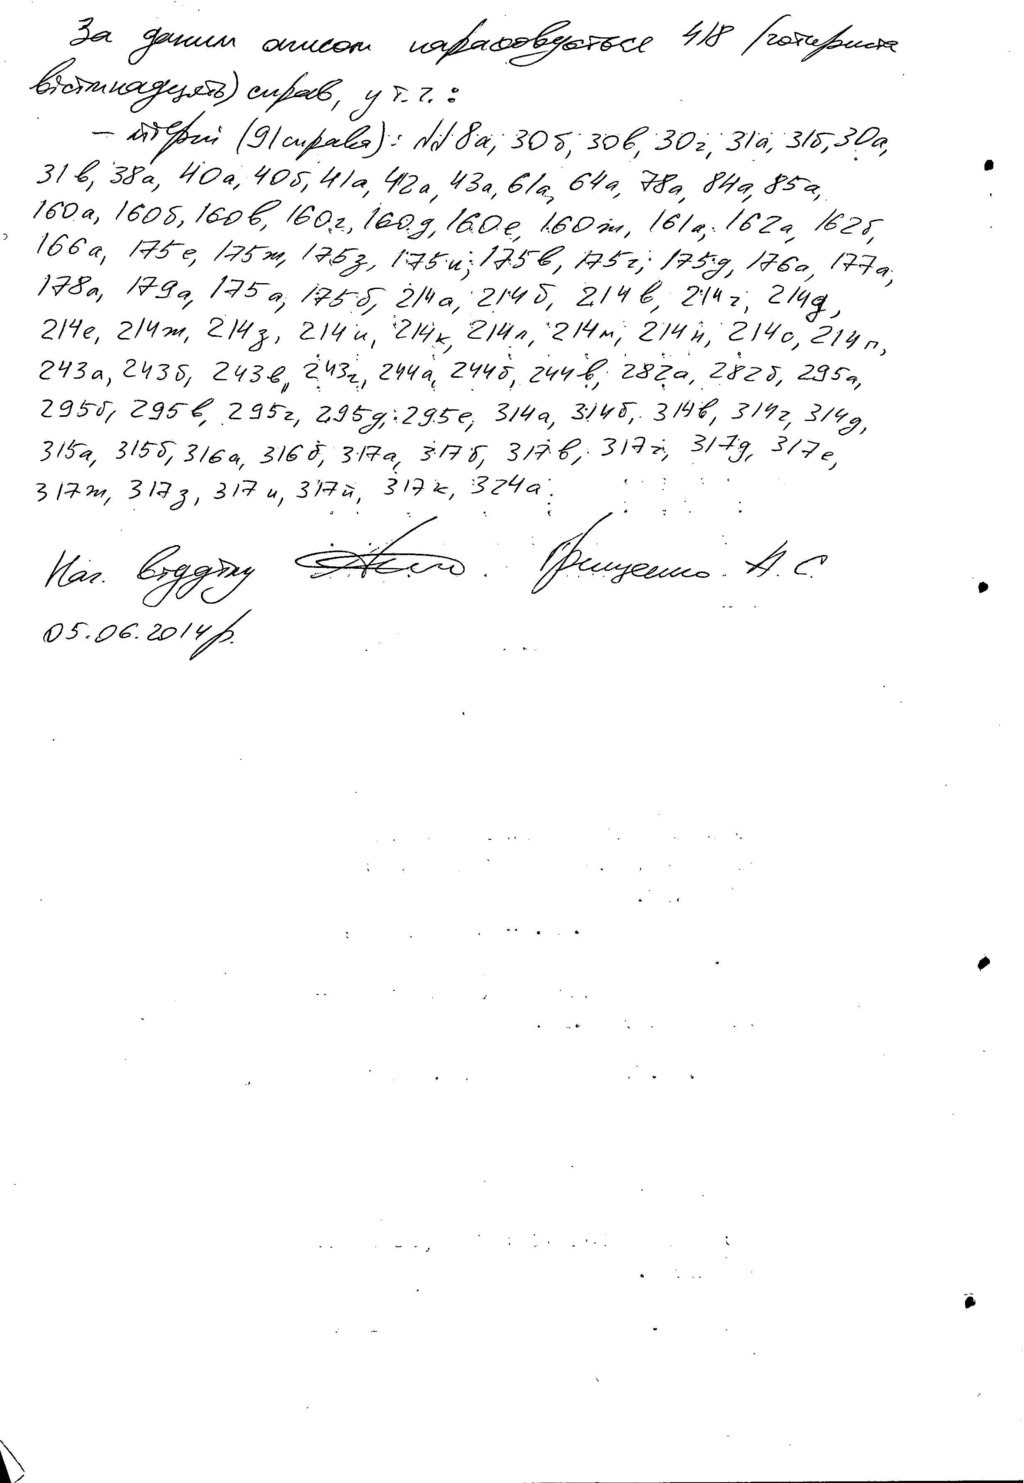 За даним описом нараховується 418 (чотириста
вісімнадцять) справ, у т.ч.:
– літерні (91 справа): №№ 8а, 30б, 30в, 30г, 31а, 31б, 30а,
31в, 38а, 40а, 40б, 41а, 42а, 43а, 61а, 64а, 78а, 84а, 85а,
160а, 160б, 160в, 160г, 160д, 160е, 160ж, 161а, 162а, 162б,
166а, 175е, 175ж, 175з, 175и, 175в, 175г, 175д, 176а, 177а,
178а, 179а, 175а, 175б, 214а, 214б, 214в, 214г, 214д,
214е, 214ж, 214з, 214и, 214к, 214л, 214м, 214н, 214о, 214п,
243а, 243б, 243в, 243г, 244а, 244б, 244в, 282а, 282б, 295а,
295б, 295в, 295г, 295д, 295е, 314а, 314б, 314в, 314г, 314д,
315а, 315б, 316а, 316б, 317а, 317б, 317в, 317г, 317д, 317е,
317ж, 317з, 317и, 317й, 317к, 324а.
Нач. відділу Грищенко А. С.
05.06.2014р.